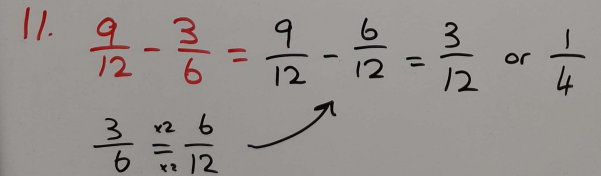 11. 9/12 - 3/6 = 9/12 - 6/12 = 3/12 or 1/4
3/6 ×2=×2 6/12